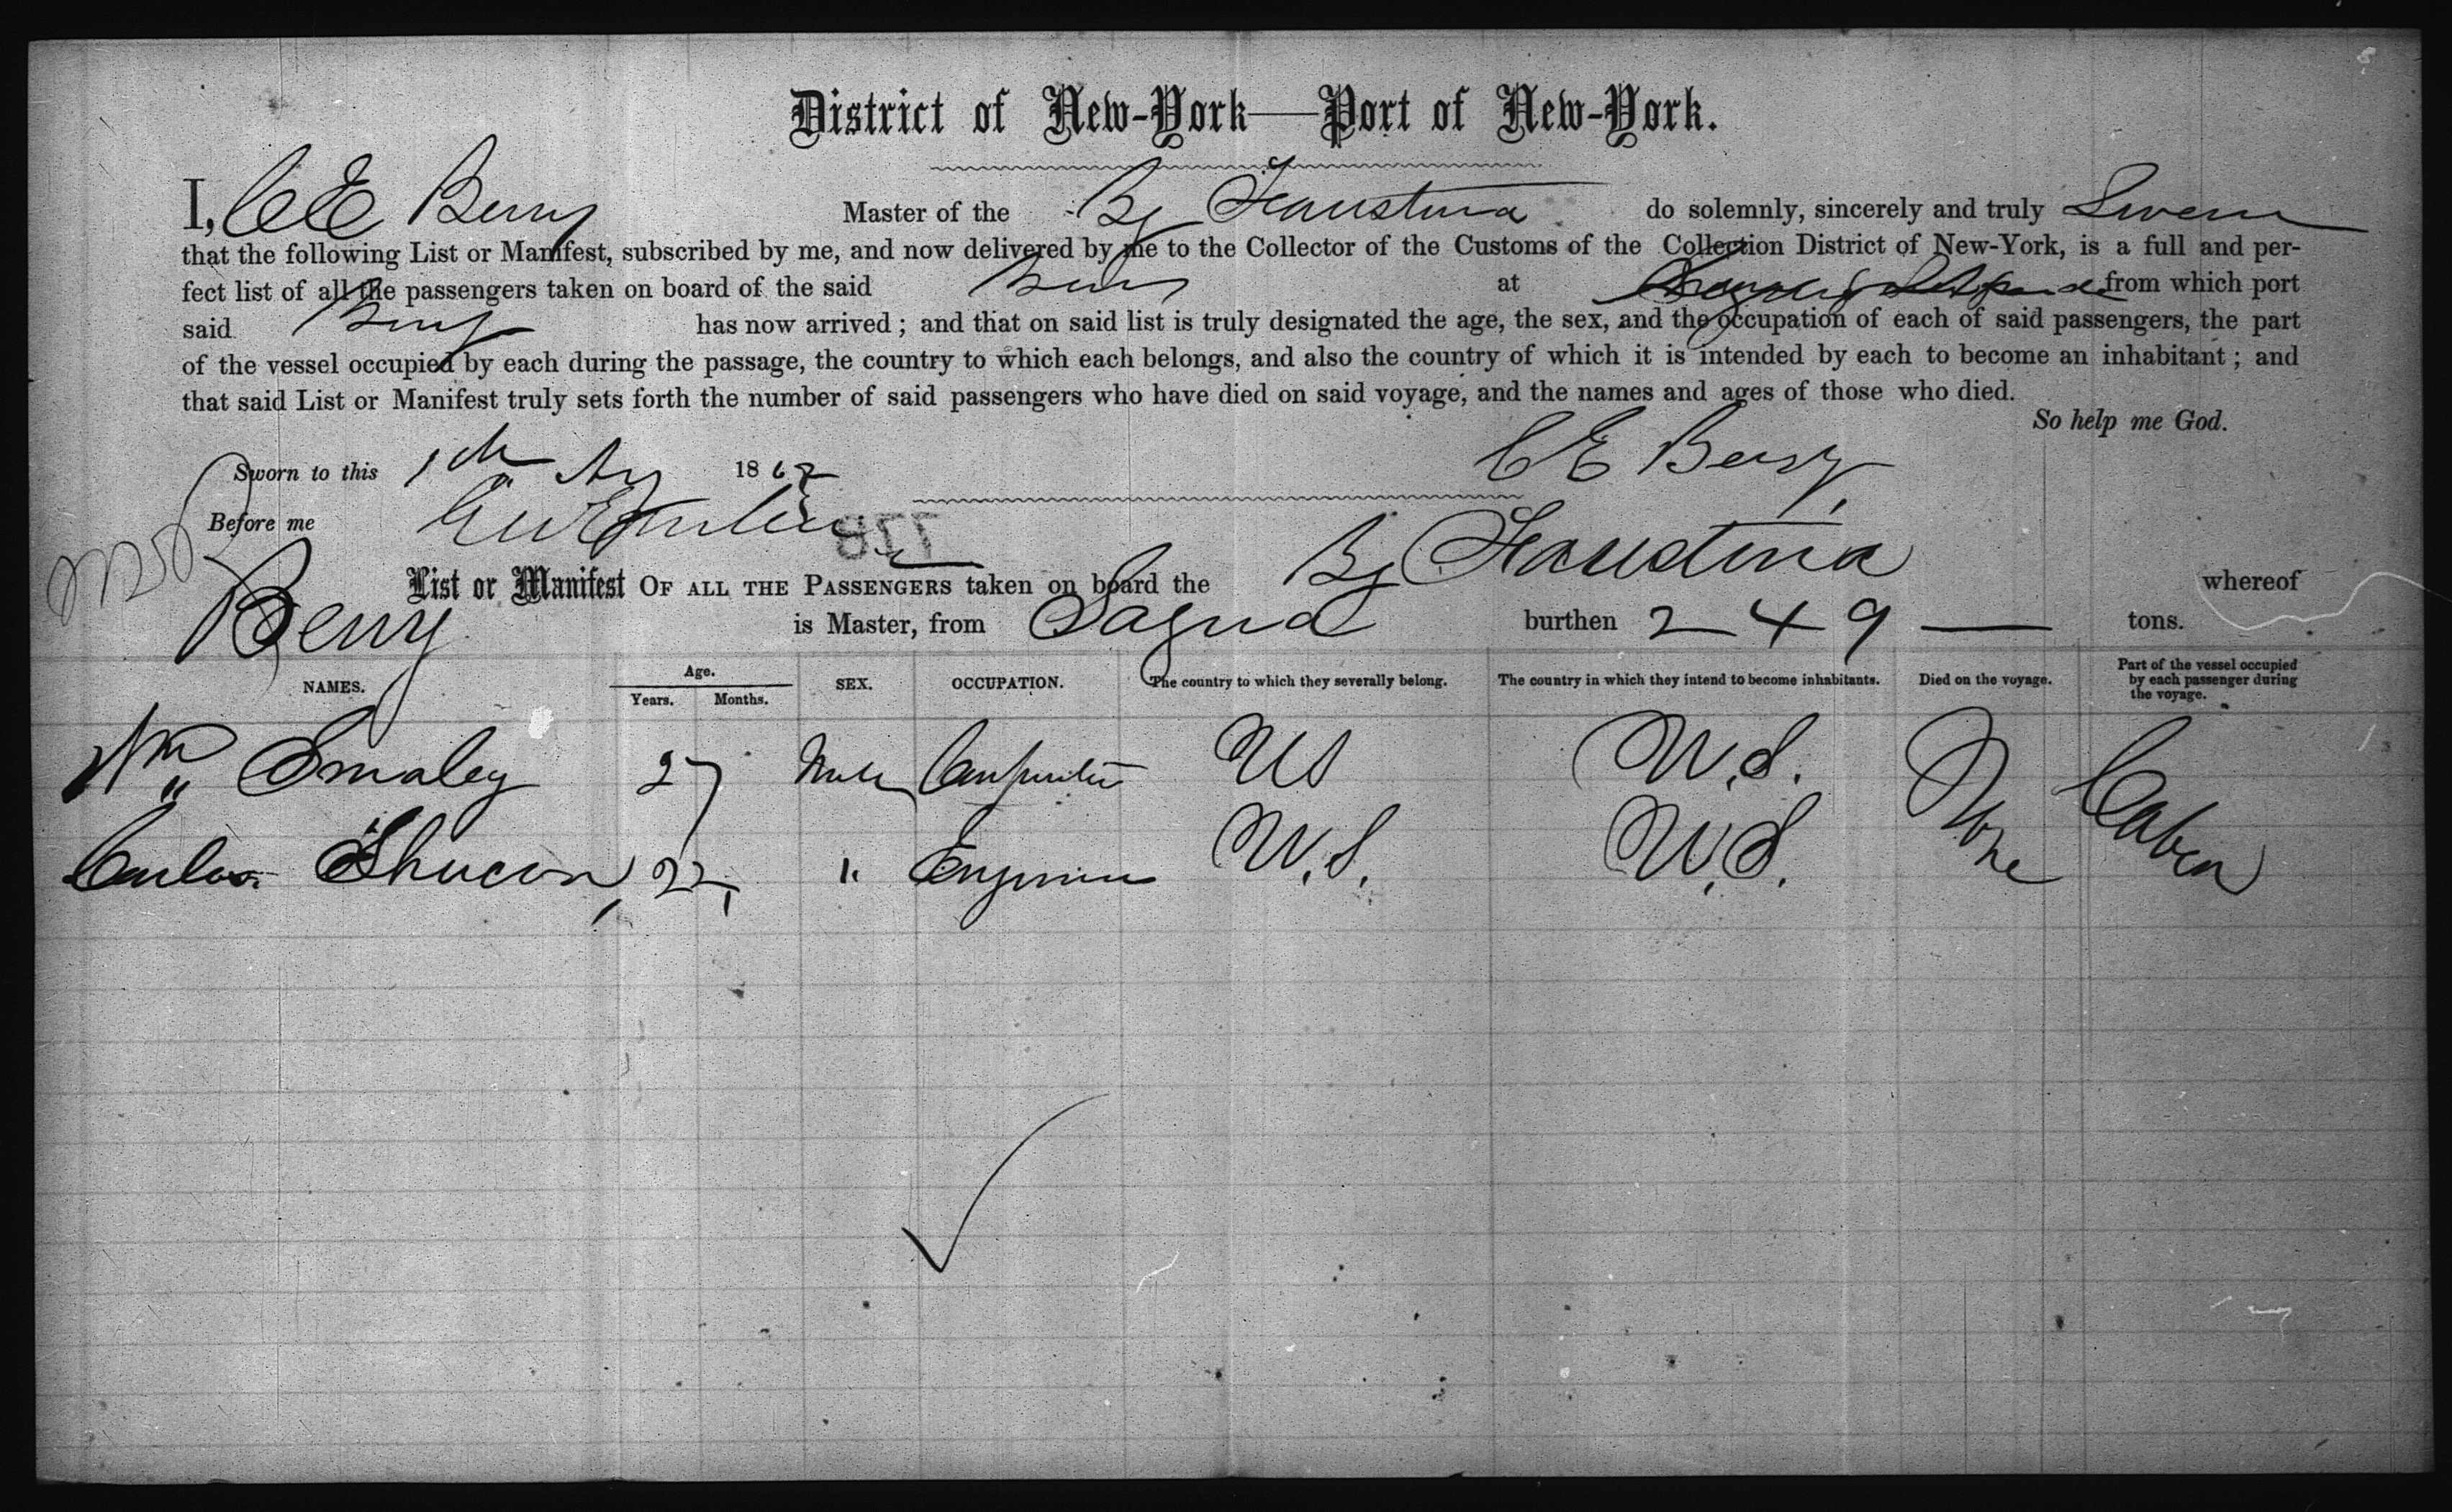 District of New-York—Port of New-York.
I, C E Berry Master of the Bg Faustina do solemnly, sincerely and truly Swear
that the following List or Manifest, subscribed by me, and now delivered by me to the Collector of the Customs of the Collection District of New-York, is a full and per-
fect list of all the passengers taken on board of the said Berry at from which port
said Berry has now arrived; and that on said list is truly designated the age, the sex, and the occupation of each of said passengers, the part
of the vessel occupied by each during the passage, the country to which each belongs, and also the country of which it is intended by each to become an inhabitant; and
that said List or Manifest truly sets forth the number of said passengers who have died on said voyage, and the names and ages of those who died.
So help me God.
Sworn to this 1th Ag 1862 C E Berry
Before me
778
List or Manifest OF ALL THE PASSENGERS taken on board the Bg Faustina whereof
Berry is Master, from Sagua burthen 249 — tons.
NAMES. Age. Years. Months. SEX. OCCUPATION. The country to which they severally belong. The country in which they intend to become inhabitants. Died on the voyage. Part of the vessel occupied by each passenger during the voyage.
Wm Smaley 27 Male Carpenter US U.S. None Cabin
Carlos 22 " Engineer U.S. U.S.